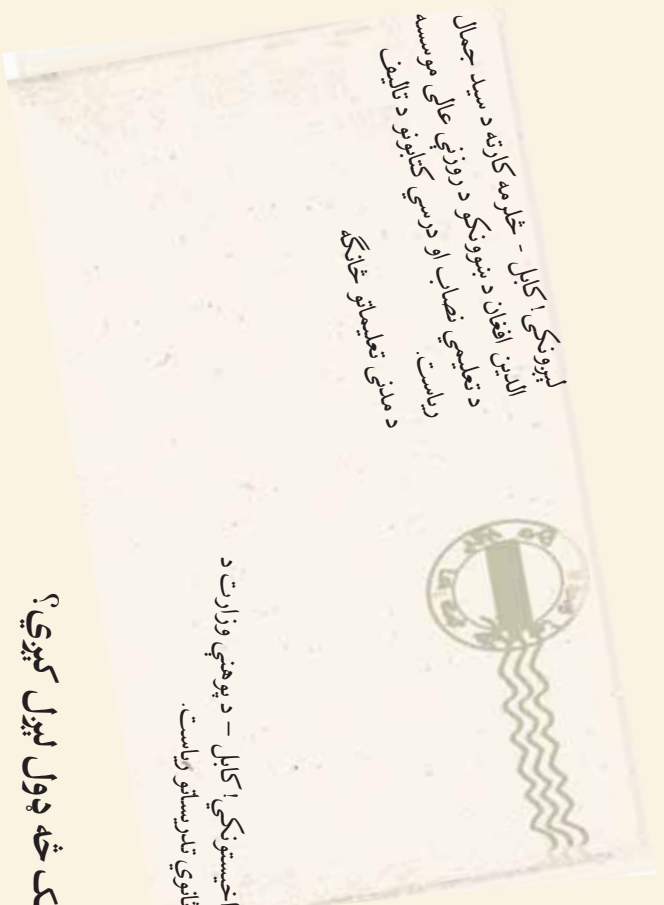 لېږونکی! کابل - څلرمه کارته د سید جمال
الدین افغان د ښوونکو د روزنې عالی موسسه
د تعلیمي نصاب او درسي کتابونو د تالیف
ریاست.
د مدنی تعلیماتو څانګه
اخیستونکي! کابل – د پوهنې وزارت د
ثانوي تدریساتو ریاست.
څه ډول لېږل کېږي؟